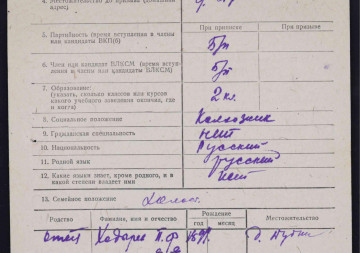 4. Местожительство до призыва (домашний
адрес)
При приписке
При призыве
5. Партийность (время вступления в члены
или кандидаты ВКП(б)
Б/п
6. Член или кандидат ВЛКСМ (время вступ-
ления в члены или кандидаты ВЛКСМ)
Б/п
7. Образование:
(указать, сколько классов или курсов
какого учебного заведения окончил, где
и когда)
2 кл.
8. Социальное положение
Колхозник
9. Гражданская специальность
нет
10. Национальность
Русский
11. Родной язык
русский
12. Какие языки знает, кроме родного, и в
какой степени владеет ими
нет
13. Семейное положение
Холост
Родство
Фамилия, имя и отчество
Рождение
Местожительство
год
месяц
отец
П. Ф.
д.